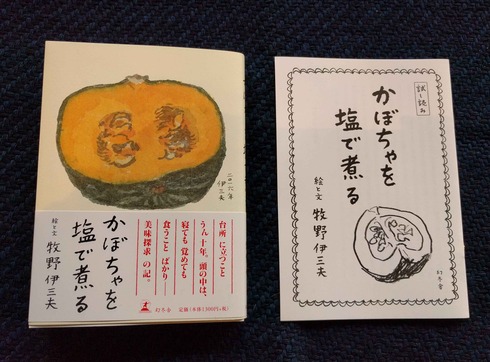 二〇一六年
伊三夫
台所に立つこと
うん十年。頭の中は、
寝ても覚めても
食うことばかり―
美味探求の記。
かぼちゃを
塩で煮る
絵と文 牧野伊三夫
幻冬舎 定価(本体1300円+税)
試し読み
かぼちゃを
塩で煮る
絵と文 牧野伊三夫
幻冬舎